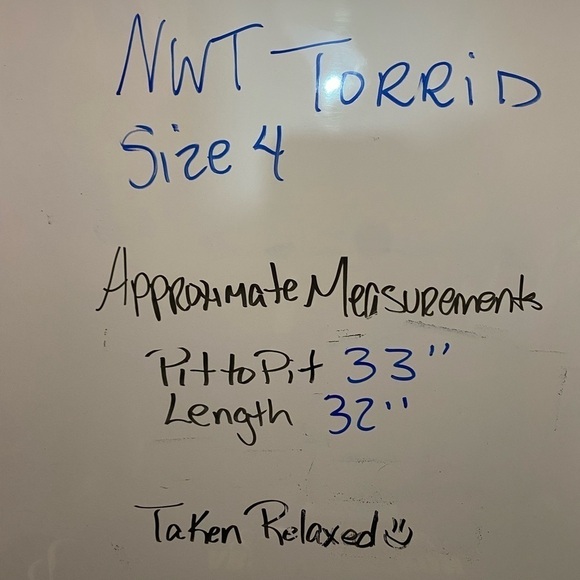 NWT TORRiD
Size 4
Approximate Measurements
Pit to Pit 33"
Length 32"
Taken Relaxed